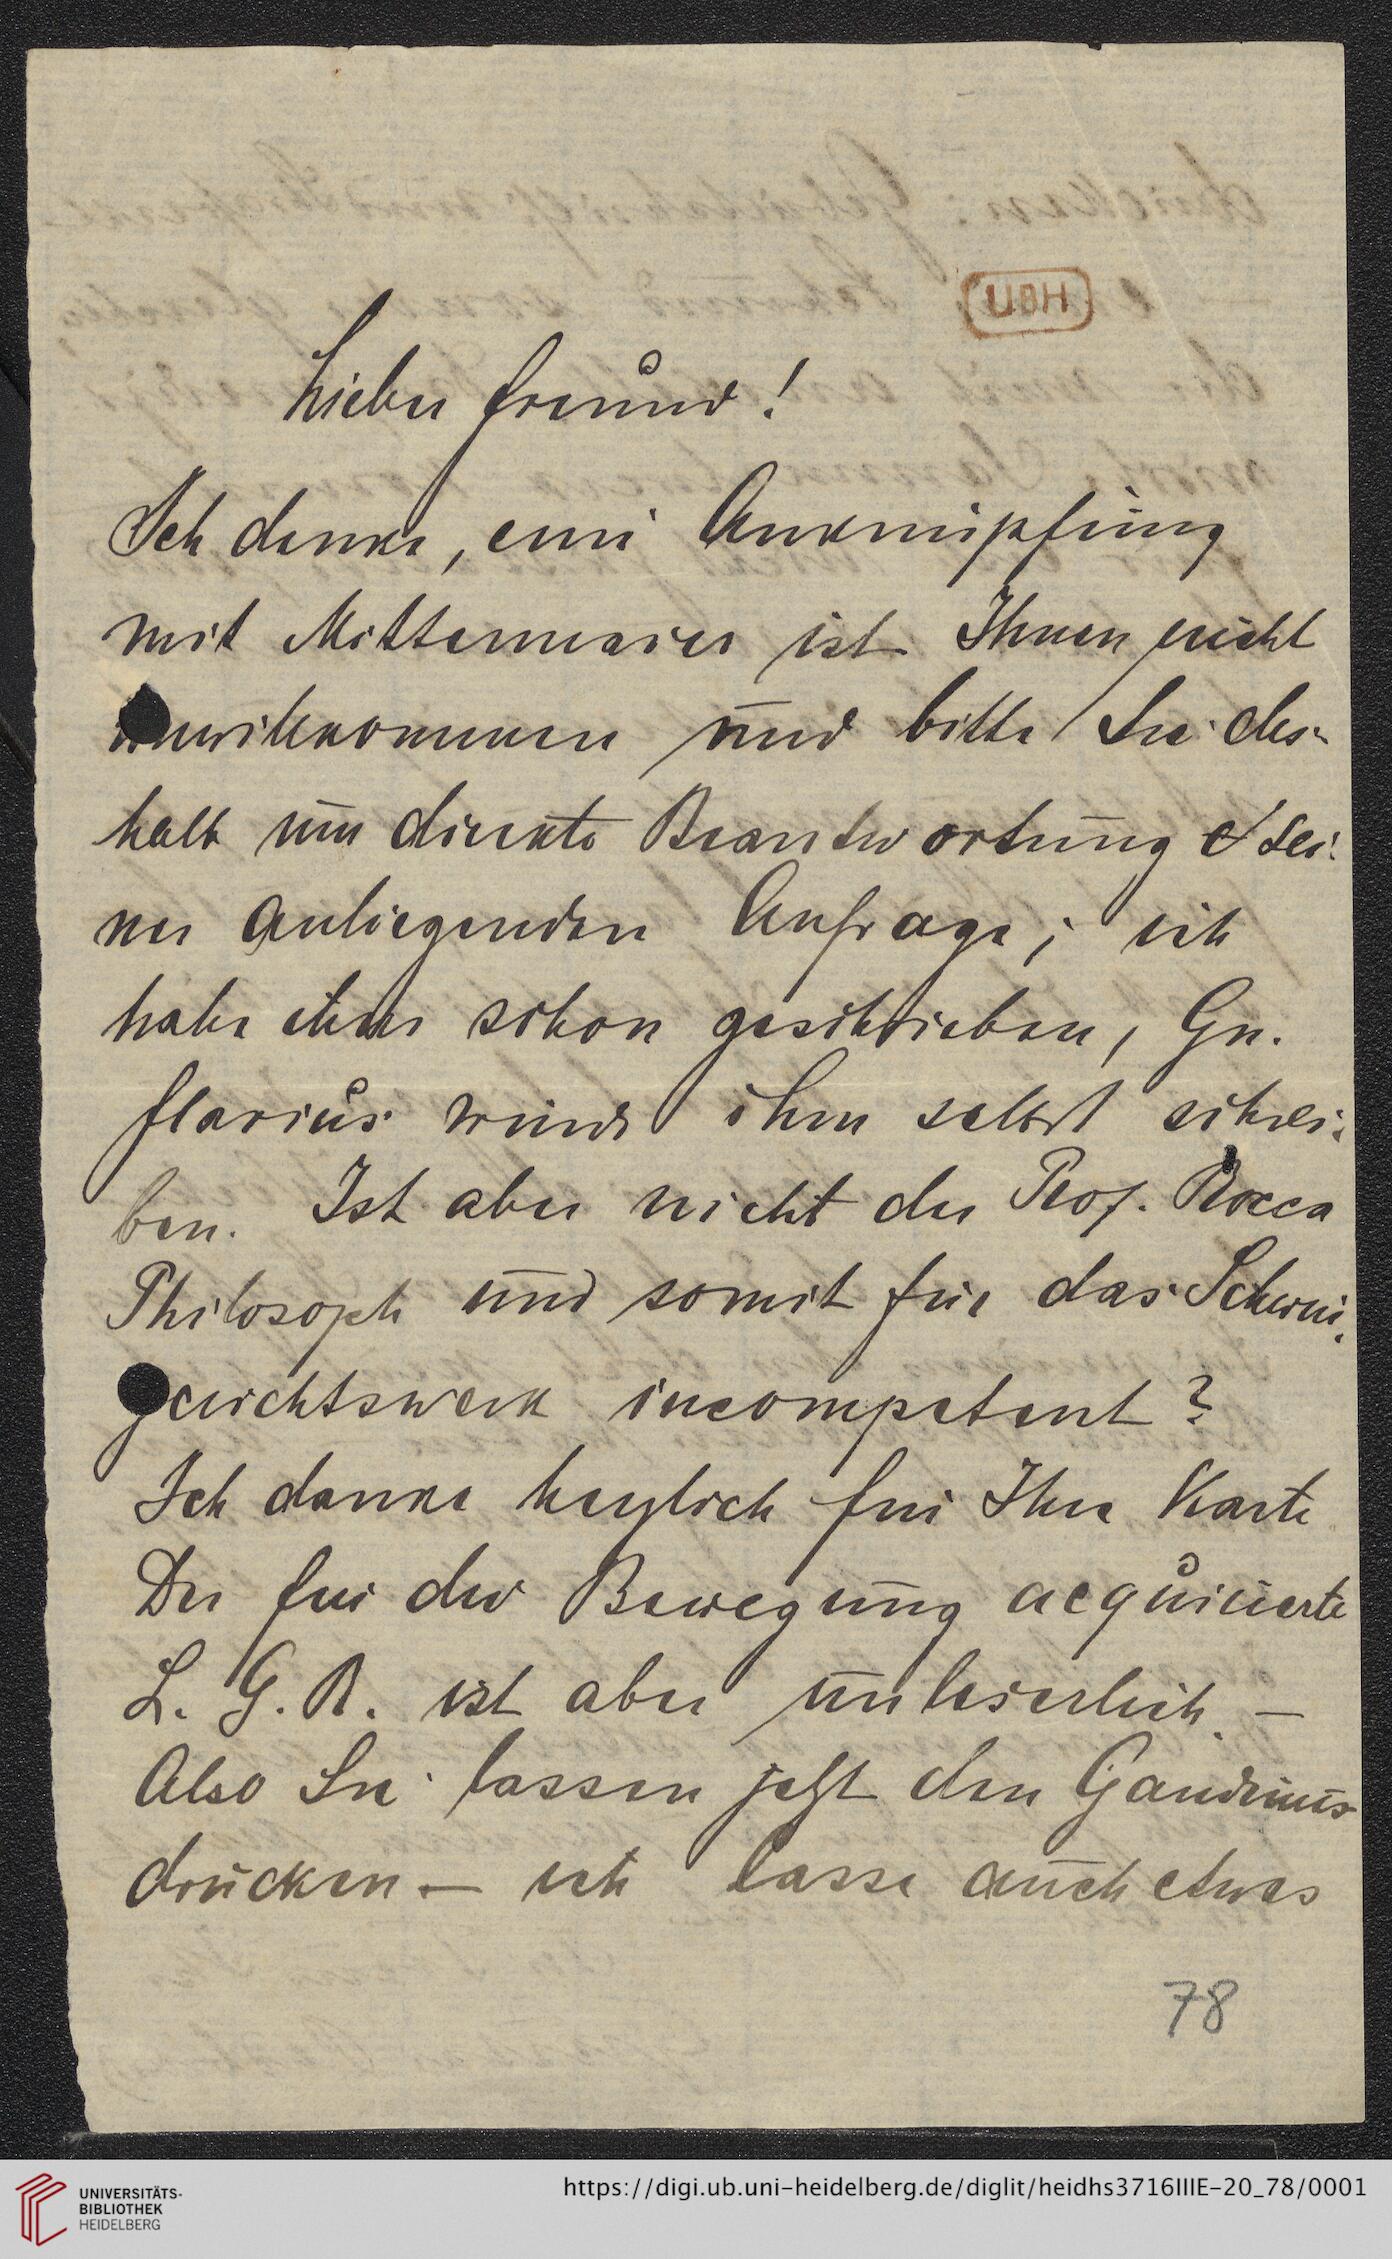 UBH
Lieber Freund!
Ich denke, eine Anknüpfung
mit Mittermaier ist Ihnen nicht
unwillkommen und bitte Sie des-
halb um direkte Beantwortung sei-
ner anliegenden Anfrage; ich
habe ihm schon geschrieben, Gn.
Flavius würde ihm selbst schrei-
ben. Ist aber nicht der Prof. Rocca
Philosoph und somit für das
incompetent?
Ich danke herzlich für Ihre Karte
Der für die Bewegung acquirierte
L. G. R. ist aber unleserlich. —
Also Sie lassen jetzt den
drucken — ich lasse auch etwas
78
UNIVERSITÄTS-
BIBLIOTHEK
HEIDELBERG
https://digi.ub.uni-heidelberg.de/diglit/heidhs3716IIIE-20_78/0001